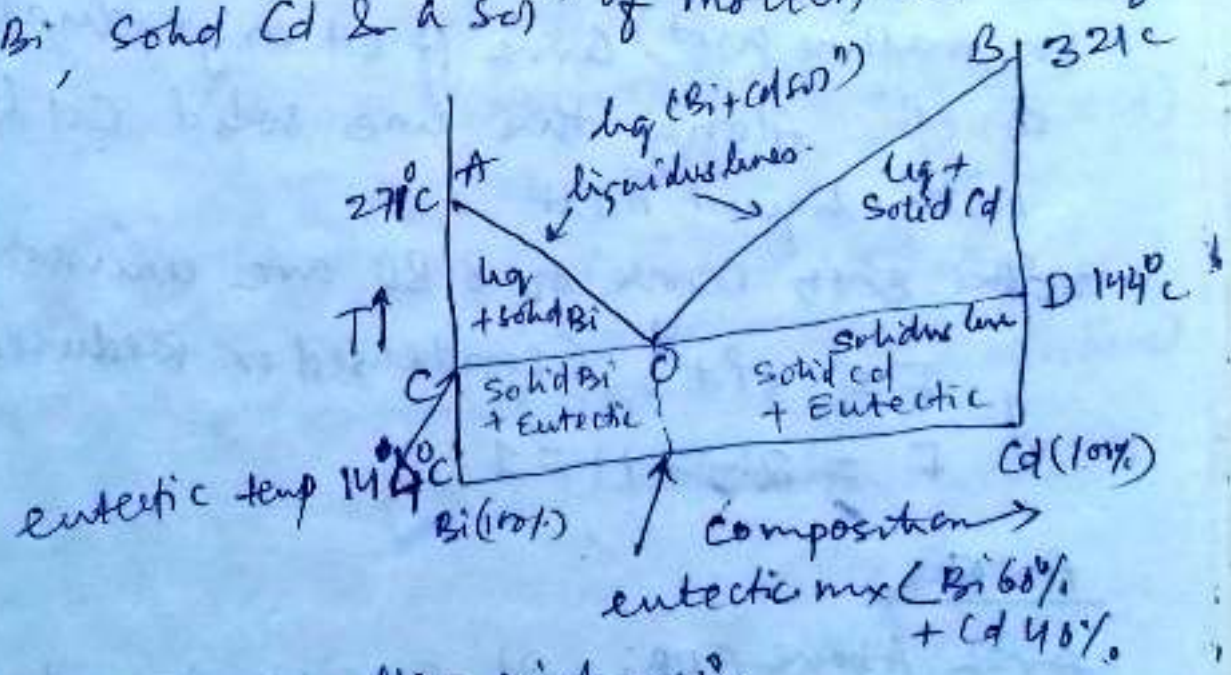 Bi, Solid Cd & a Sol of
B 321 c
liq (Bi + Cd soln)
liquidus lines.
A
271°C
liq +
Solid Cd
liq
+ solid Bi
T↑
D 144°c
solidus line
C
O
Solid Bi
+ Eutectic
Solid cd
+ Eutectic
eutectic temp 144°C
Bi (100%)
Cd (100%)
Composition →
eutectic mix ( Bi 60%
+ Cd 40%.